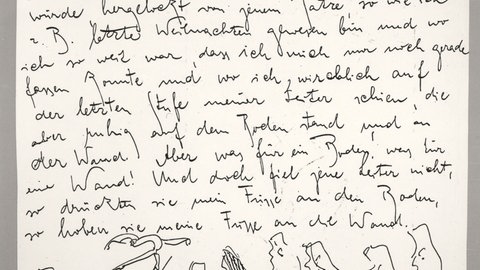 würde hergelockt von jenem Jahre so wie ich
z. B. letzte Weihnachten gewesen bin und wo
ich so weit war, dass ich mich nur noch gerade
fassen konnte und wo ich wirklich auf
der letzten Stufe meiner Leiter schien, die
aber ruhig auf dem Boden stand und an
der Wand. Aber was für ein Boden, was für
eine Wand! Und doch fiel jene Leiter nicht,
so drückten sie meine Füsse an den Boden,
so hoben sie meine Füsse an die Wand.